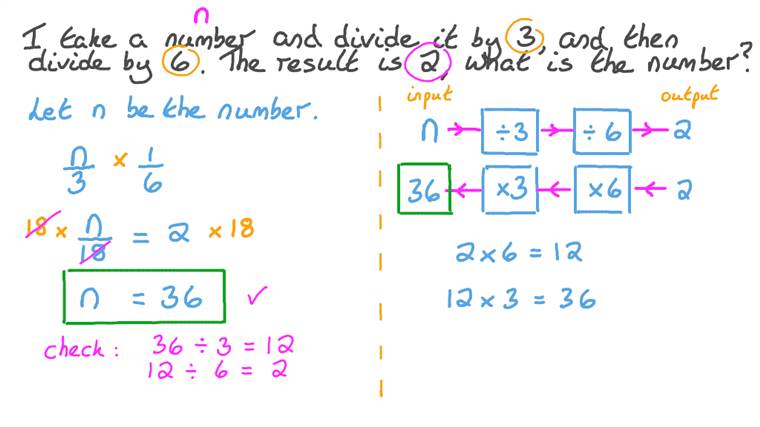 n
I take a number and divide it by 3, and then
divide by 6. The result is 2, what is the number?
Let n be the number.
n/3 × 1/6
18 × n/18 = 2 × 18
n = 36 ✓
check: 36 ÷ 3 = 12
12 ÷ 6 = 2
input output
n ÷3 ÷6 2
36 ×3 ×6 2
2 × 6 = 12
12 × 3 = 36